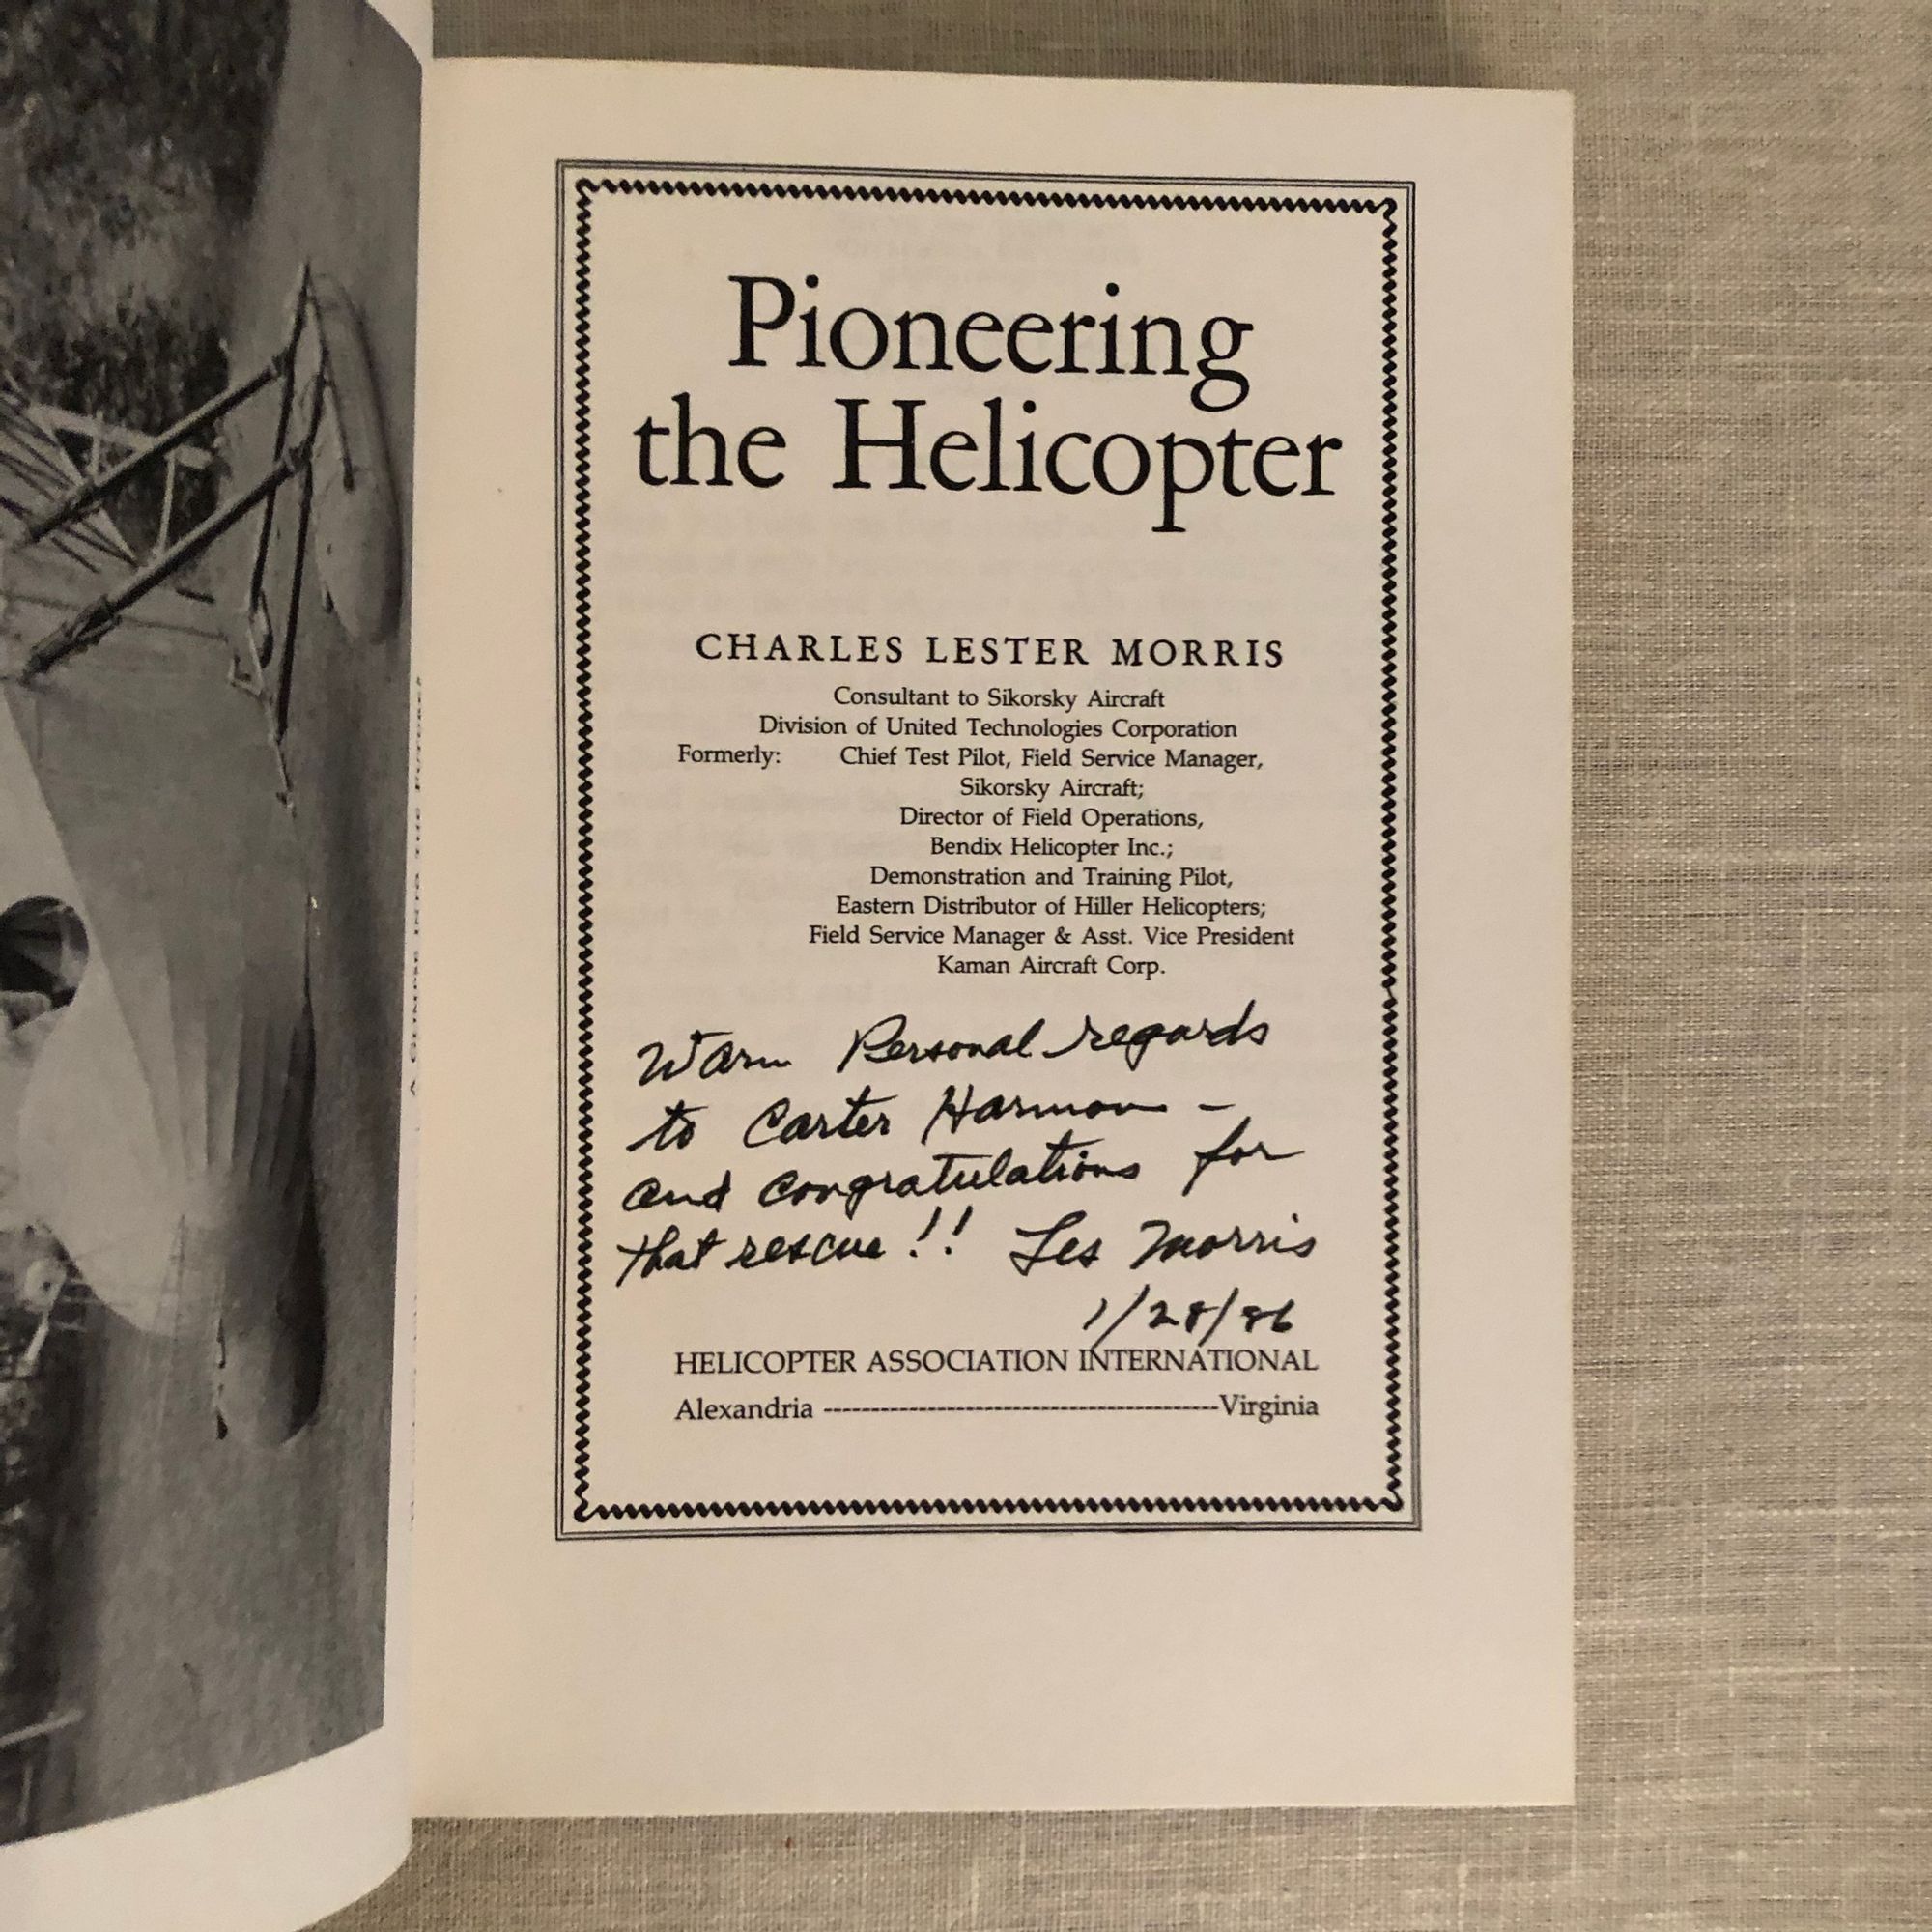 A GLIMPSE INTO THE FUTURE!
Pioneering
the Helicopter
CHARLES LESTER MORRIS
Consultant to Sikorsky Aircraft
Division of United Technologies Corporation
Formerly: Chief Test Pilot, Field Service Manager,
Sikorsky Aircraft;
Director of Field Operations,
Bendix Helicopter Inc.;
Demonstration and Training Pilot,
Eastern Distributor of Hiller Helicopters;
Field Service Manager & Asst. Vice President
Kaman Aircraft Corp.
Warm Personal regards
to Carter Harmon -
and congratulations for
that rescue!! Les Morris
1/28/86
HELICOPTER ASSOCIATION INTERNATIONAL
Alexandria ------------------------------------------Virginia